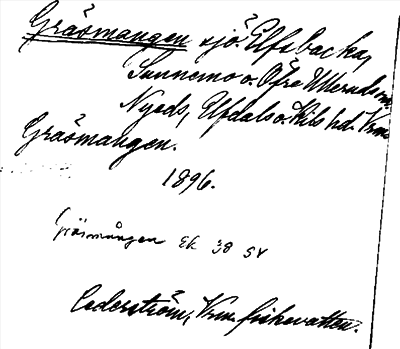 Gräsmangen sjö. Elfsbacka,
Sunnemo o. Öfre Ullerud snr.
Nyeds, Elfdals o. Kils hd. Vrm.
Gräsmangen.
1896.
Gräsmången Ek 38 SV
Cederström, Vrm. fiskevatten.